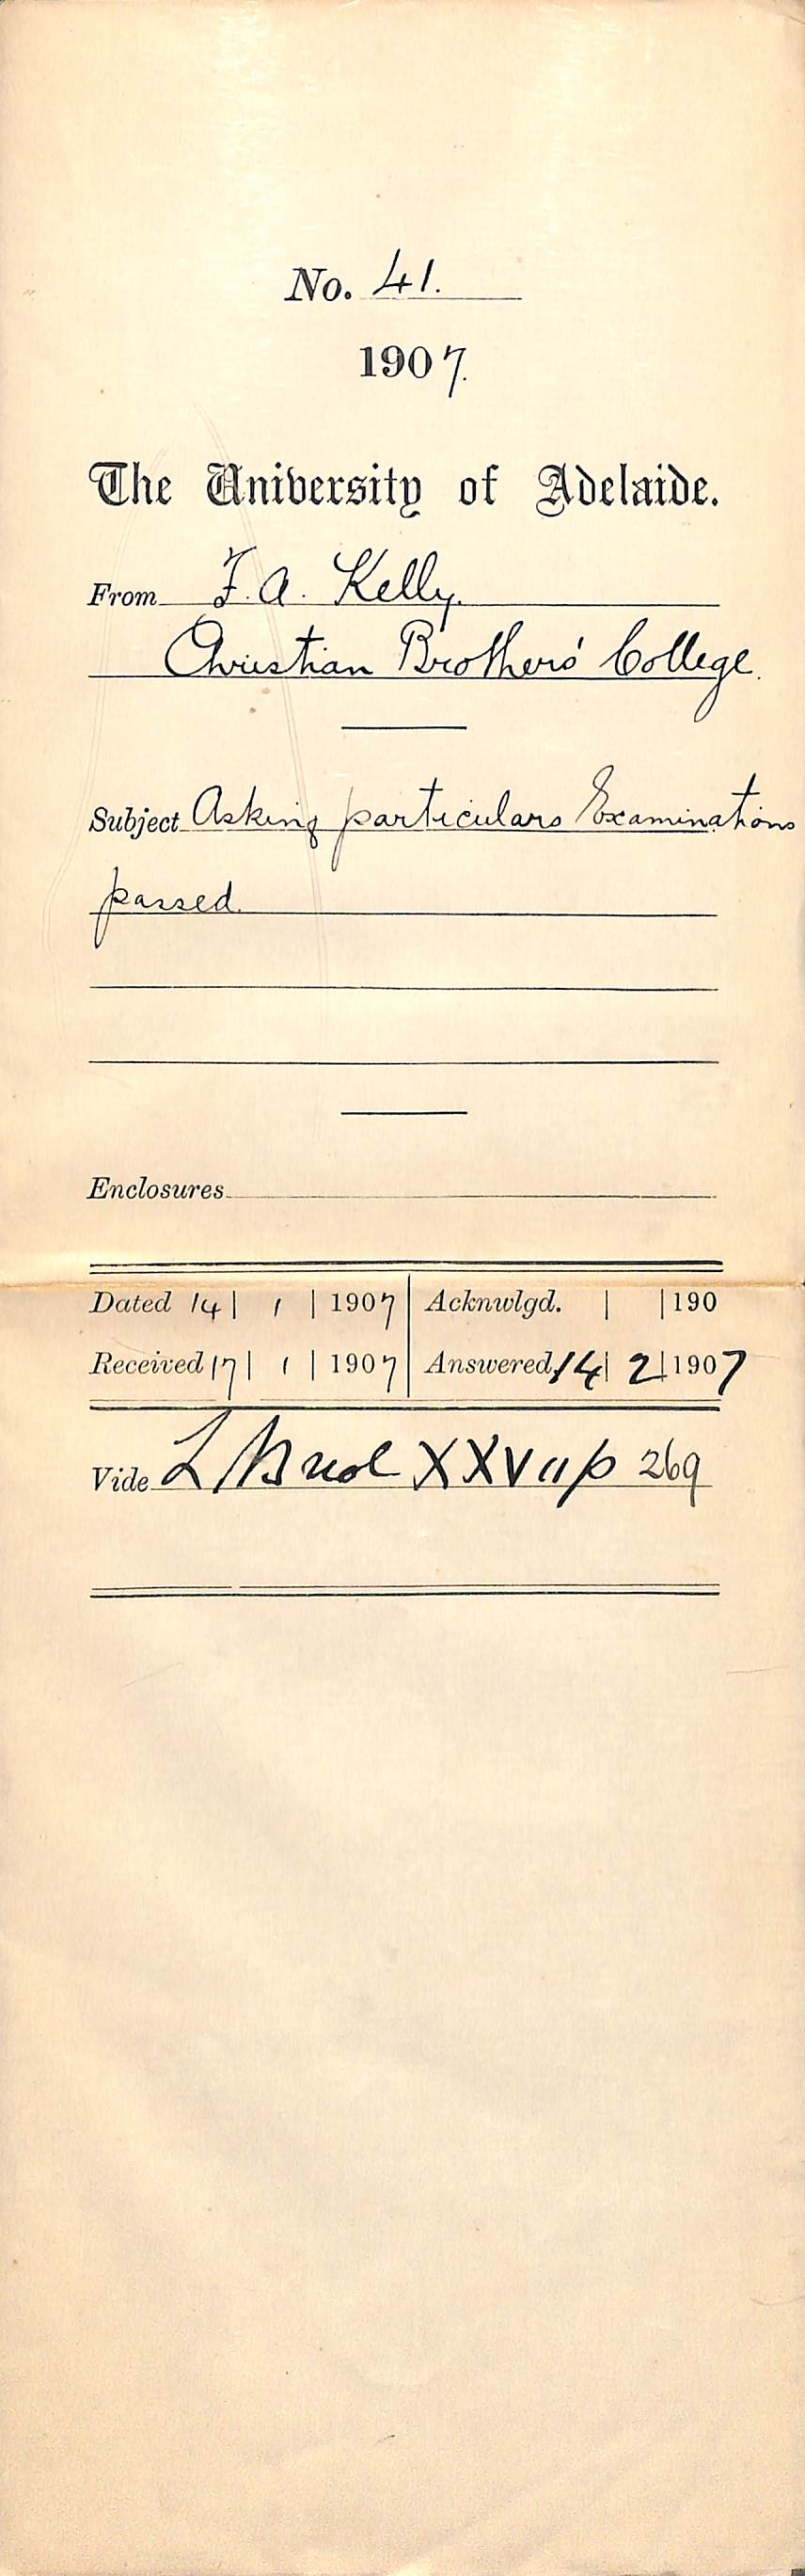 No. 41.
1907.
The University of Adelaide.
From F. A. Kelly.
Christian Brothers' College.
Subject Asking particulars Examinations
passed.
Enclosures
Dated 14 | 1 | 1907 Acknwlgd. | | 190
Received 17 | 1 | 1907 Answered 14 | 2 | 1907
Vide L B vol XXVII p 269